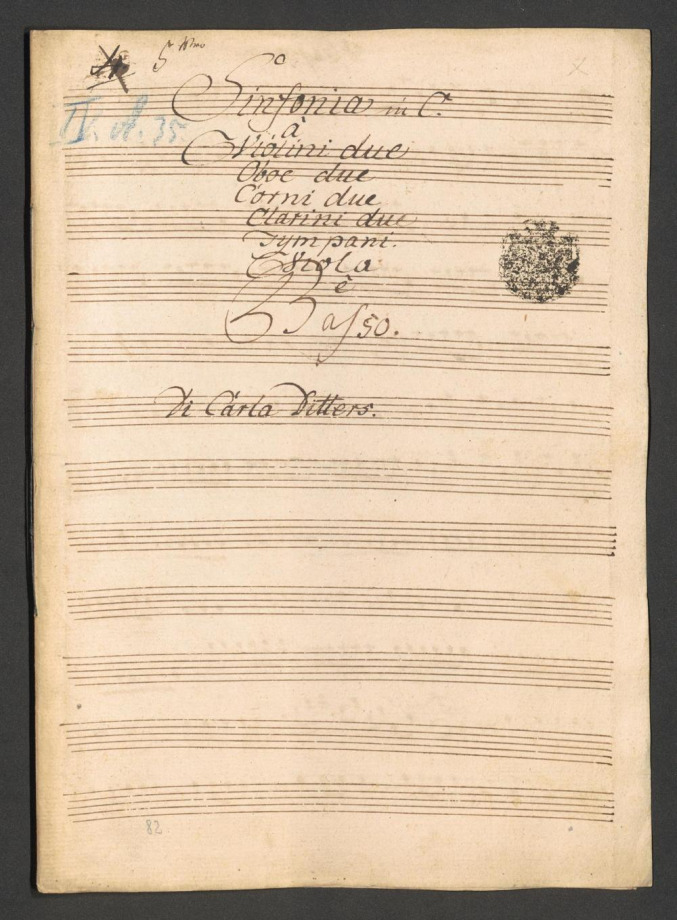 5
Sinfonia in C.
à
Violini due
Oboe due
Corni due
Clarini due
Tympani.
Viola
è
Basso.
IV. A. 35.
Di Carla Ditters.
82